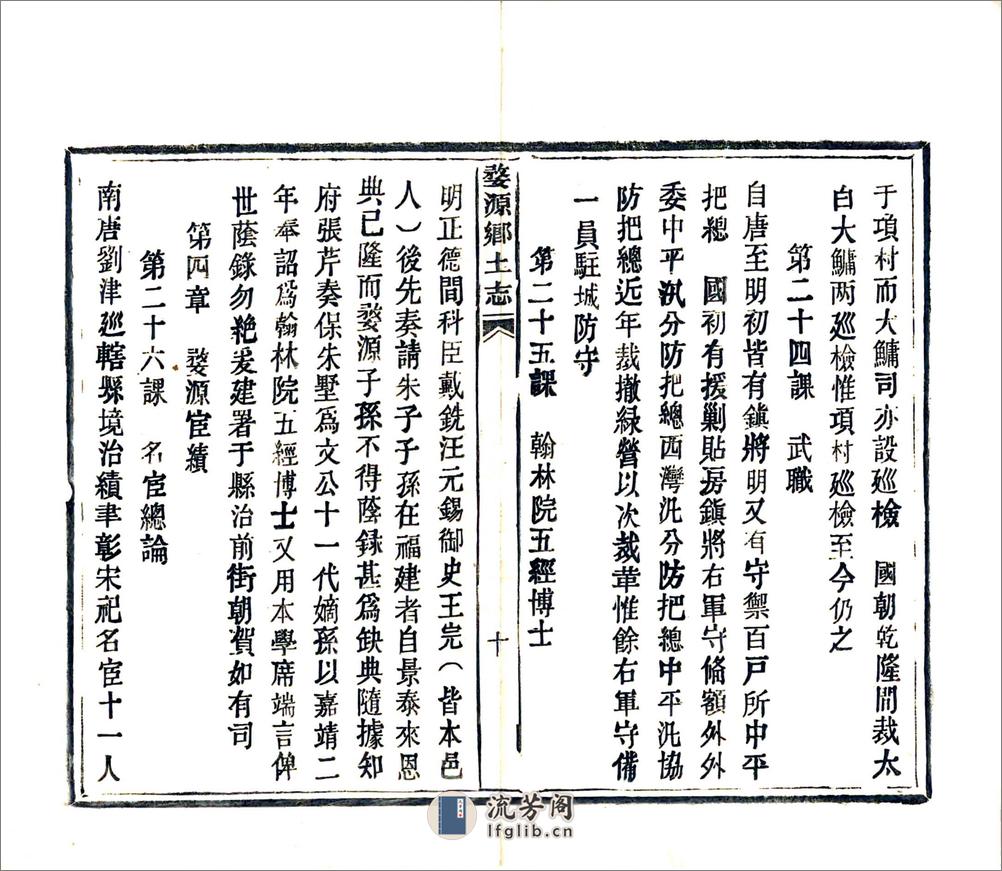 于項村而大鱅司亦設廵檢　國朝乾隆間裁太
白大鱅两廵檢惟項村廵檢至今仍之
第二十四課　武職
自唐至明初皆有鎮將明又有守禦百戸所中平
把總　國初有援剿貼房鎮將右軍守俻額外外
委中平汛分防把總西灣汛分防把總中平汛協
防把總近年裁撤緑營以次裁革惟餘右軍守備
一員駐城防守
第二十五課　翰林院五經博士
婺源鄉土志
十
明正德間科臣戴銑汪元錫御史王完（皆本邑
人）後先奏請朱子子孫在福建者自景泰來恩
典已隆而婺源子孫不得蔭錄甚爲缺典隨據知
府張芹奏保朱墅爲文公十一代嫡孫以嘉靖二
年奉詔爲翰林院五經博士又用本學席端言俾
世蔭錄勿絶爰建署于縣治前街朝賀如有司
第四章　婺源宦績
第二十六課　名宦總論
南唐劉津廵轄縣境治績聿彰宋祀名宦十一人
流芳阁
lfglib.cn